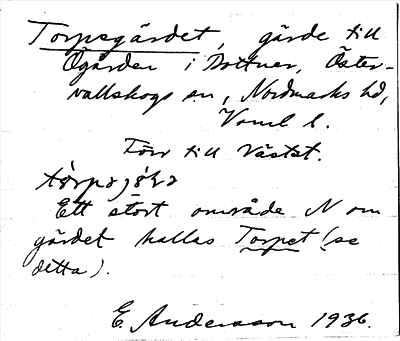 Torpsgärdet, gärde till
Ögården i Bottner, Öster-
vallskogs sn, Nordmarks hd,
Värml. l.
Förr till Västst.
Ett stort område N om
gärdet kallas Torpet (se
detta).
E. Andersson 1936.